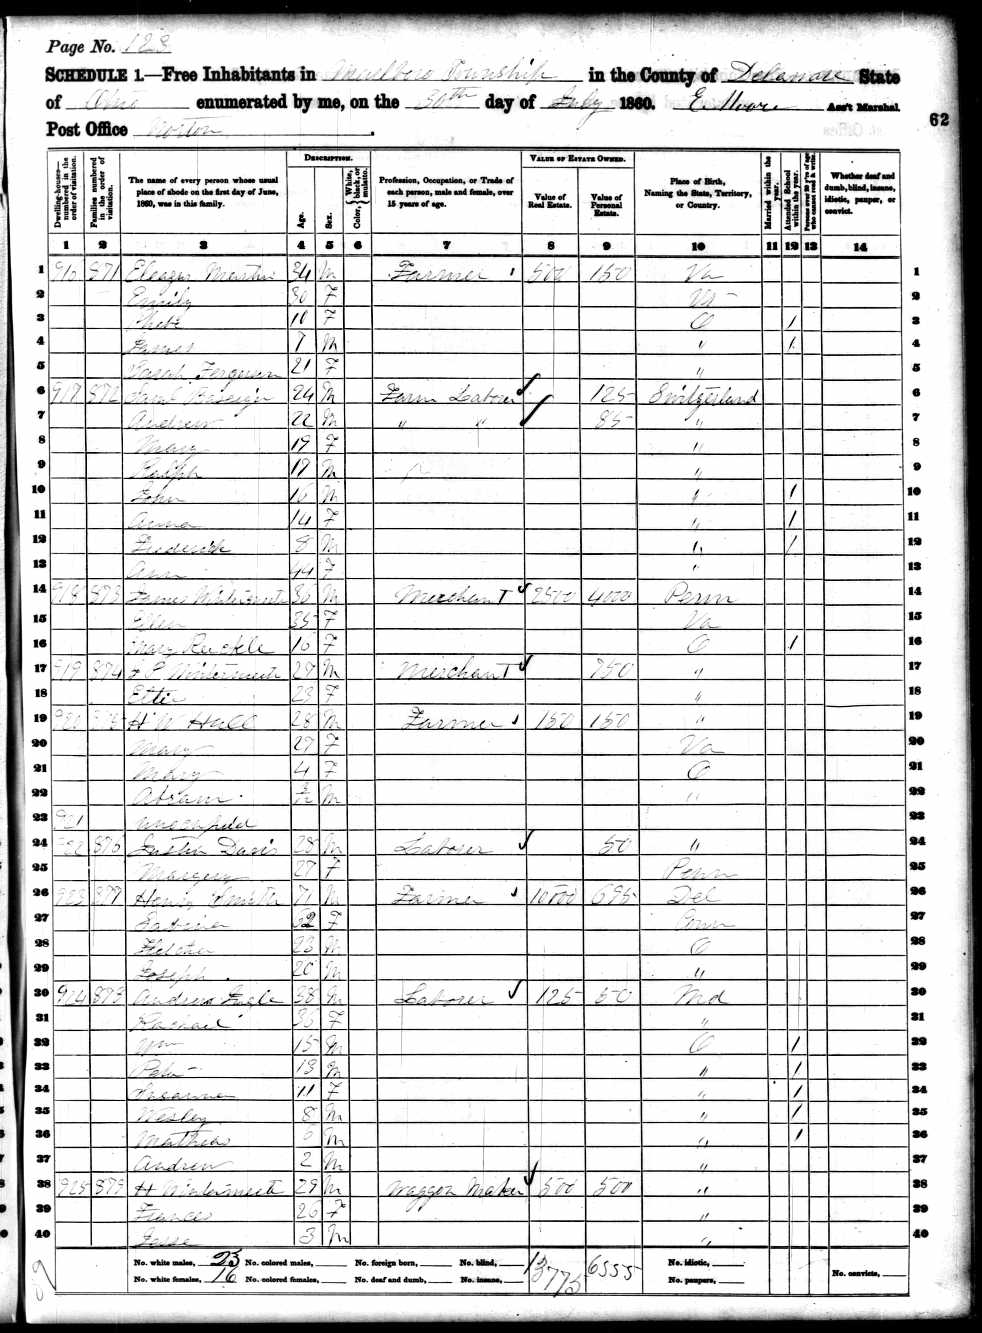 Page No. 123
SCHEDULE 1.—Free Inhabitants in Marlboro Township in the County of Delaware State
of Ohio enumerated by me, on the 30th day of July 1860. E. Moore Ass't Marshal.
Post Office Norton.
62
Dwelling-houses—numbered in the order of visitation.
Families numbered in the order of visitation.
The name of every person whose usual place of abode on the first day of June, 1860, was in this family.
DESCRIPTION.
Age.
Sex.
Color, White, black, or mulatto.
Profession, Occupation, or Trade of each person, male and female, over 15 years of age.
VALUE OF ESTATE OWNED.
Value of Real Estate.
Value of Personal Estate.
Place of Birth, Naming the State, Territory, or Country.
Married within the year.
Attended School within the year.
Persons over 20 y'rs of age who cannot read & write.
Whether deaf and dumb, blind, insane, idiotic, pauper, or convict.
1 2 3 4 5 6 7 8 9 10 11 12 13 14
1 871 34 M Farmer 500 150 Va 1
2 Emily 30 F Va 2
3 10 F O / 3
4 James 7 M " / 4
5 Sarah Ferguson 21 F " 5
6 917 872 24 M Farm Laborer 125 Switzerland 6
7 Andrew 22 M " " 85 " 7
8 Mary 19 F " 8
9 Ralph 17 M " 9
10 John 16 M " / 10
11 Anna 14 F " / 11
12 Frederick 8 M " / 12
13 Ann 44 F " 13
14 918 873 James 30 M Merchant 2500 4000 Penn 14
15 Ellen 35 F Va 15
16 Mary 16 F O / 16
17 919 874 27 M Merchant 750 " 17
18 23 F " 18
19 920 875 H W Hall 28 M Farmer 150 150 " 19
20 Mary 27 F Va 20
21 Mary 4 F O 21
22 Abram M " 22
23 921 Unoccupied 23
24 922 876 Davis 28 M Laborer 50 " 24
25 Margery 27 F Penn 25
26 923 877 Henry Smith 71 M Farmer 10000 695 Del 26
27 52 F 27
28 Fletcher 23 M O 28
29 Joseph 20 M " 29
30 924 878 Andrew 38 M Laborer 125 50 Md 30
31 Rachael 36 F " 31
32 Wm 15 M O / 32
33 Peter 13 M " / 33
34 Susanna 11 F " / 34
35 Wesley 8 M " / 35
36 Mathias 6 M " / 36
37 Andrew 2 M " 37
38 925 879 H Wintermute 29 M Waggon Maker 500 500 " 38
39 Frances 26 F " 39
40 Jesse 3 M " 40
No. white males, 23 No. colored males, No. foreign born, No. blind, 13775 6555 No. idiotic,
No. white females, 16 No. colored females, No. deaf and dumb, No. insane, No. paupers, No. convicts,